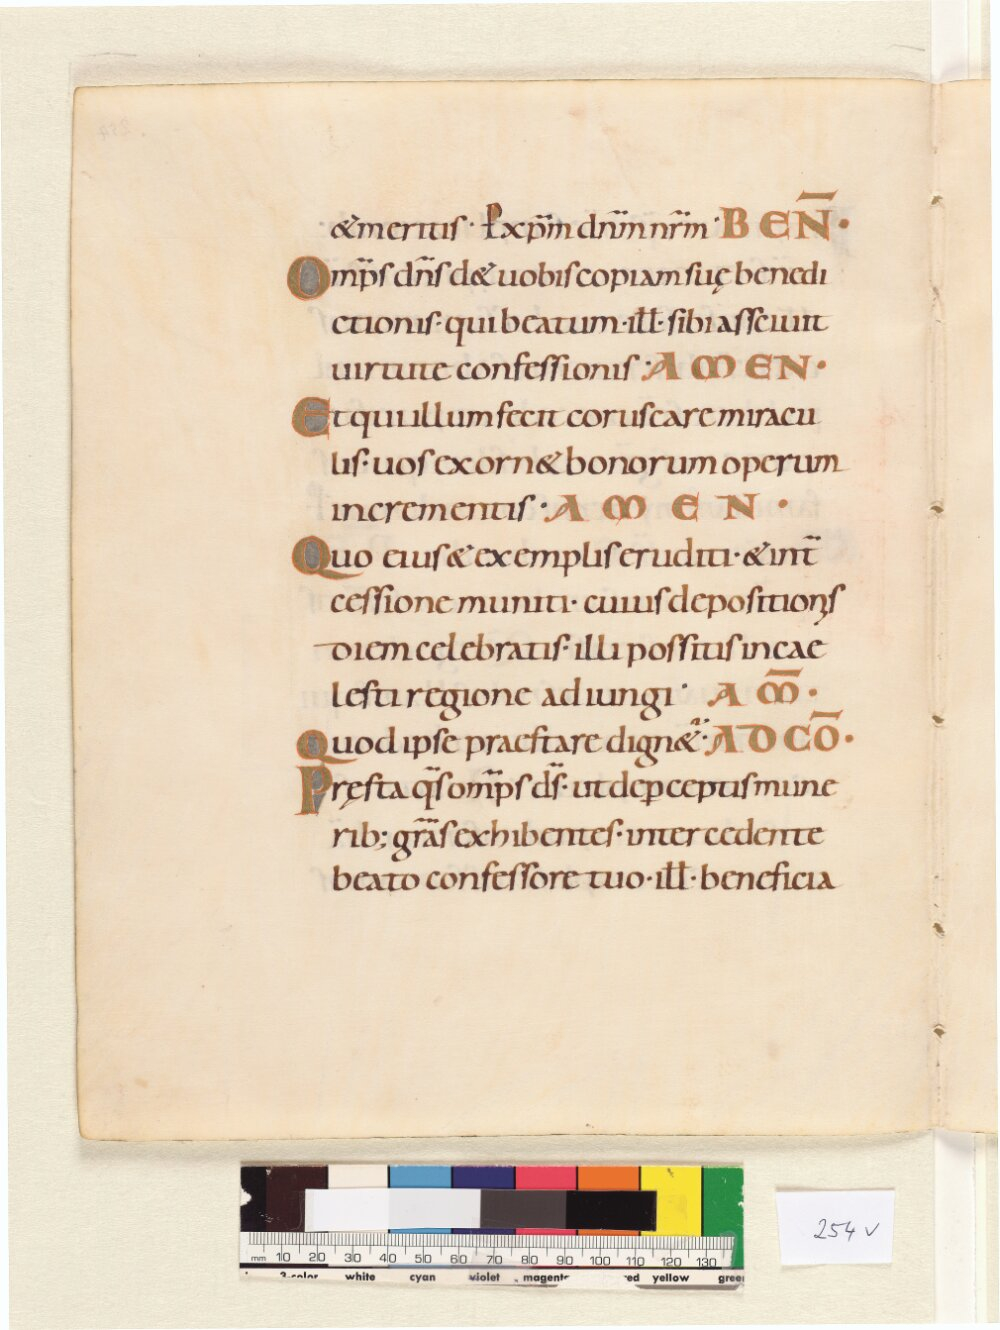 &meritis· P xp̄m dnm̄ nrm̄· BEN̄·
Omp̄s dn̄s d& uobis copiam suę benedi
ctionis· qui beatum· ill̄· sibi asseiuit
uirtute confessionis· AMEN·
Et qui illum fecit coruscare miracu
lis· uos exorn& bonorum operum
incrementis· AMEN·
Quo eius & exemplis eruditi· & int̄
cessione muniti· cuius depositionis
diem celebratis· illi possitis in cae
lesti regione adiungi· AM̄·
Quod ipse praestare dign&ur· AD CŌ·
Pręsta qs̄ omp̄s ds̄· ut de ꝑceptis mune
rib; grās exhibentes· intercedente
beato confessore tuo· ill̄· beneficia
mm 10 20 30 40 50 60 70 80 90 100 110 120 130
3-color white cyan violet magenta red yellow green
254 v